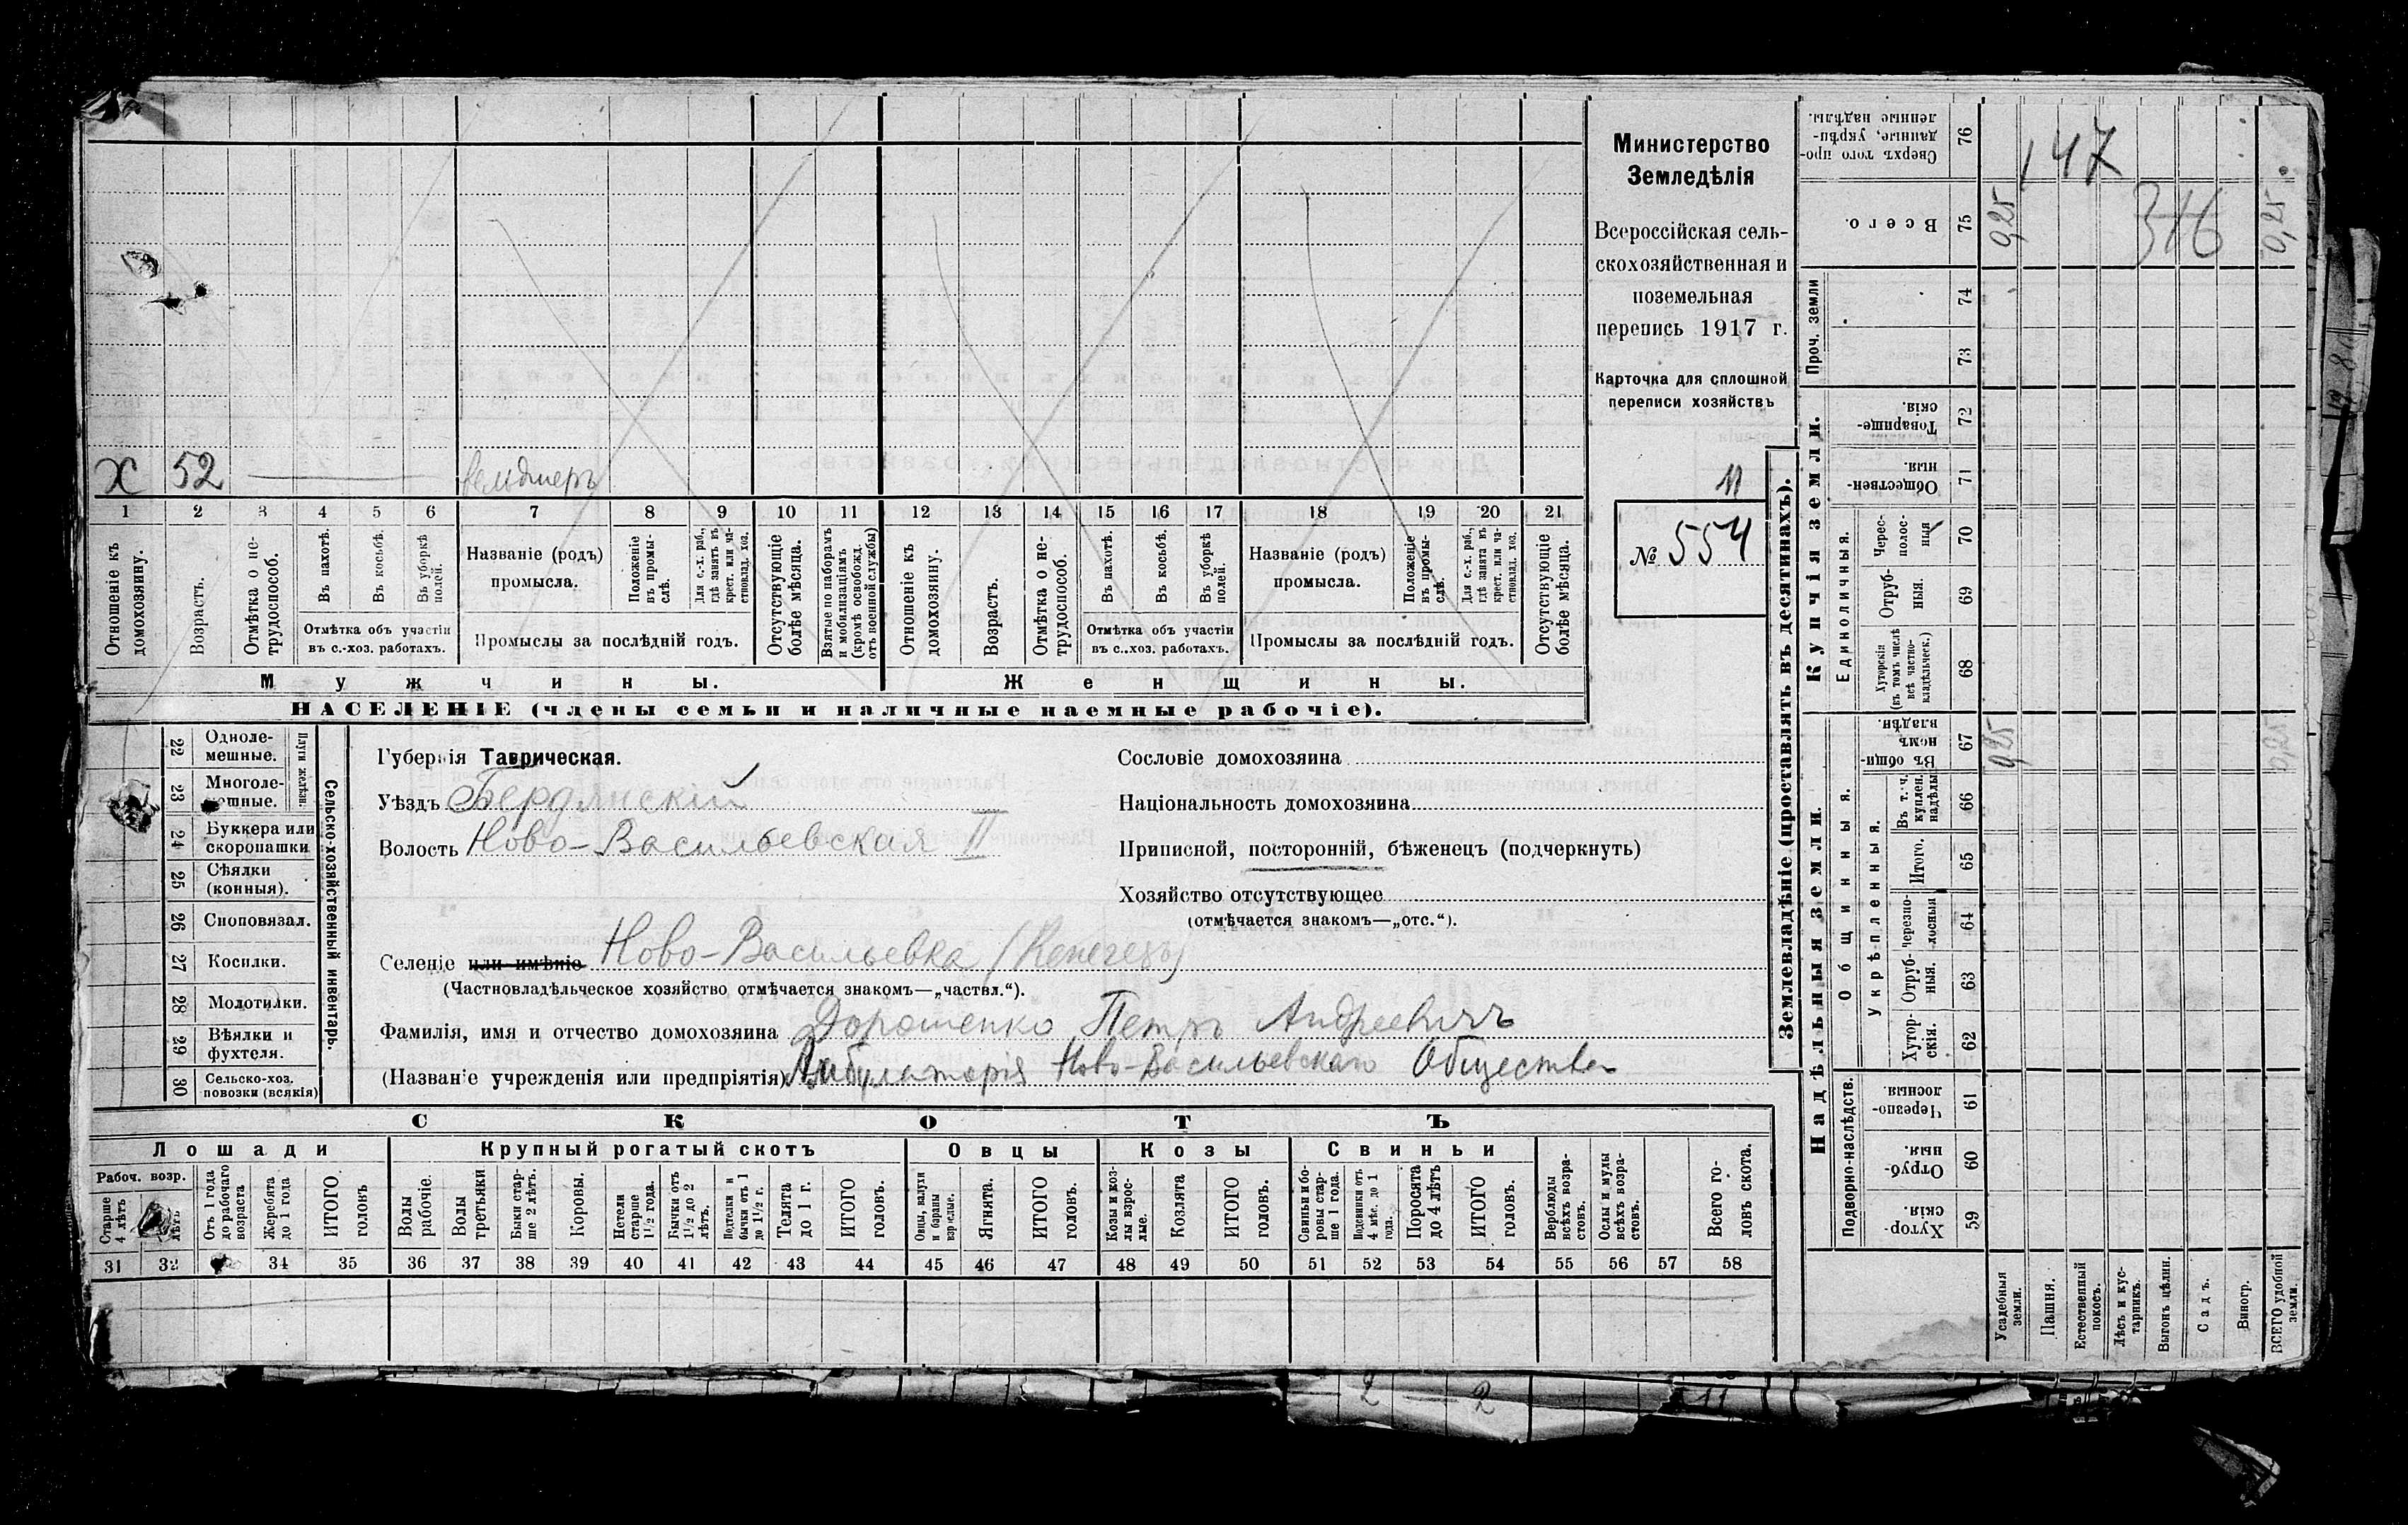 Х 52 фельдшеръ
1 2 3 4 5 6 7 8 9 10 11 12 13 14 15 16 17 18 19 20 21
Отношеніе къ домохозяину.
Возрастъ.
Отмѣтка о не-
трудоспособ.
Въ пахотѣ.
Въ косьбѣ.
Въ уборкѣ
полей.
Отмѣтка объ участіи
въ с.-хоз. работахъ.
Названіе (родъ)
промысла.
Положеніе
въ промы-
слѣ.
Для с.-х. раб.,
гдѣ занятъ въ
крест. или ча-
стновлад. хоз.
Промыслы за послѣдній годъ.
Отсутствующіе
болѣе мѣсяца.
Взятые по наборамъ
и мобилизаціямъ
(кромѣ освобожд.
отъ военной службы)
Отношеніе къ
домохозяину.
Возрастъ.
Отмѣтка о не-
трудоспособ.
Въ пахотѣ.
Въ косьбѣ.
Въ уборкѣ
полей.
Отмѣтка объ участіи
въ с..хоз. работахъ.
Названіе (родъ)
промысла.
Положеніе
въ промы-
слѣ.
Для с.-х. раб.,
гдѣ занята въ
крест. или ча-
стновлад. хоз.
Промыслы за послѣдній годъ.
Отсутствующіе
болѣе мѣсяца.
Мужчины.
Женщины.
НАСЕЛЕНІЕ (члены семьи и наличные наемные рабочіе).
Министерство
Земледѣлія
Всероссійская сель-
скохозяйственная и
поземельная
перепись 1917 г.
Карточка для сплошной
переписи хозяйствъ
11
№ 554
22 Одноле-
мешные.
23 Многоле-
мешные.
Плуги желѣзн.
24 Буккера или
скоропашки
25 Сѣялки
(конныя).
26 Сноповязал.
27 Косилки.
28 Молотилки.
29 Вѣялки и
фухтеля.
30 Сельско-хоз.
повозки (всякія)
Сельско-хозяйственный инвентарь.
Губернія Таврическая.
Уѣздъ Бердянскій
Волость Ново-Васильевская II
Селеніе или имѣніе Ново-Васильевка (Кенегезы)
(Частновладѣльческое хозяйство отмѣчается знакомъ—„частвл.“).
Фамилія, имя и отчество домохозяина Дорошенко Петръ Андреевичъ
(Названіе учрежденія или предпріятія) Амбулаторія Ново-Васильевскаго Общества
Сословіе домохозяина
Національность домохозяина
Приписной, посторонній, бѣженецъ (подчеркнуть)
Хозяйство отсутствующее
(отмѣчается знакомъ—„отс.“).
СКОТЪ
Лошади
Крупный рогатый скотъ
Овцы
Козы
Свиньи
Рабоч. возр.
Старше
4 лѣтъ
лѣтъ
Отъ 1 года
до рабочаго
возраста
Жеребята
до 1 года
ИТОГО
головъ
Волы
рабочіе.
Волы
третьяки
Быки стар-
ше 2 лѣтъ.
Коровы.
Нетели
старше
1½ года.
Бычки отъ
1½ до 2
лѣтъ.
Подтелки и
бычки отъ 1
до 1½ г.
Телята
до 1 г.
ИТОГО
головъ.
Овцы, валухи
и бараны
взрослые.
Ягнята.
ИТОГО
головъ.
Козы и коз-
лы взрос-
лые.
Козлята
ИТОГО
головъ.
Свиньи и бо-
ровы стар-
ше 1 года.
Подсвинки отъ
4 мѣс. до 1
года.
Поросята
до 4 лѣтъ
ИТОГО
головъ.
Верблюды
всѣхъ возра-
стовъ.
Ослы и мулы
всѣхъ возра-
стовъ.
Всего го-
ловъ скота.
31 32 34 35 36 37 38 39 40 41 42 43 44 45 46 47 48 49 50 51 52 53 54 55 56 57 58
Землевладѣніе (проставлять въ десятинахъ).
Сверхъ того про-
данные, укрѣп-
ленные надѣлы.
76
147
Всего.
75
0,25
316
0,25
Проч. земли
74
73
Купчія земли.
Товарище-
скія.
72
Обществен-
ныя.
71
Единоличныя.
Черес-
полос-
ныя
70
Отруб-
ныя.
69
Хуторскія
(въ томъ числѣ
всѣ частно-
владѣльческ.)
68
Надѣльныя земли.
Общинныя.
Въ общин-
номъ
владѣн.
67
0,25
0,25
Укрѣпленныя.
Въ т. ч.
куплен.
надѣлы
66
Итого.
65
черезпо-
лосныя
64
Отруб-
ныя.
63
Хутор-
скія.
62
Подворно-наслѣдств.
Черезпо-
лосныя.
61
Отруб-
ныя.
60
Хутор-
скія.
59
Усадебныя
земли.
Пашня.
Естественный
покосъ.
Лѣсъ и кус-
тарникъ.
Выгонъ цѣлин.
Садъ.
Виногр.
ВСЕГО удобной
земли.
2 — 2
11